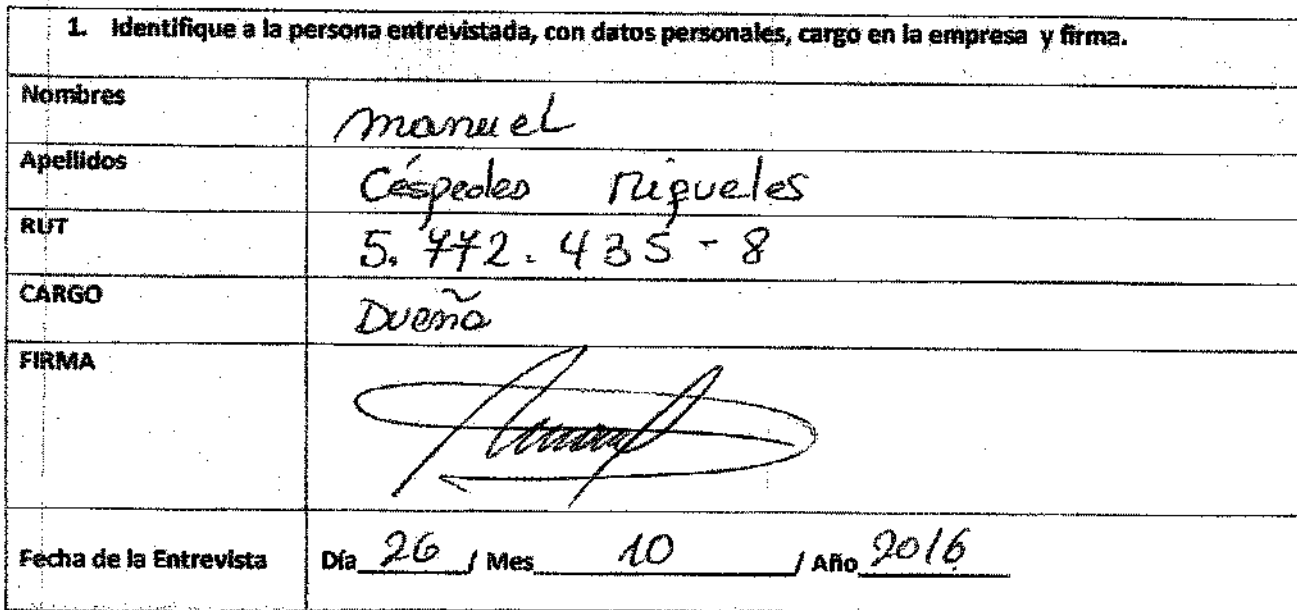 1. Identifique a la persona entrevistada, con datos personales, cargo en la empresa y firma.
Nombres manuel
Apellidos Céspedes
RUT 5.772.435-8
CARGO Dueño
FIRMA
Fecha de la Entrevista Día 26 / Mes 10 / Año 2016